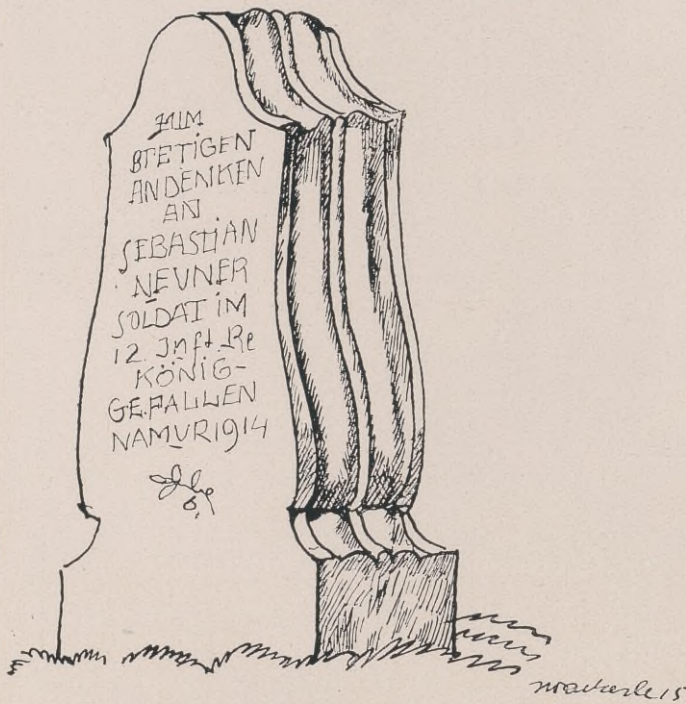 ZUM
STETIGEN
ANDENKEN
AN
SEBASTIAN
NEUNER
SOLDAT IM
12. Inft. Re
KÖNIG-
GEFALLEN
NAMUR 1914
Wackerle 15